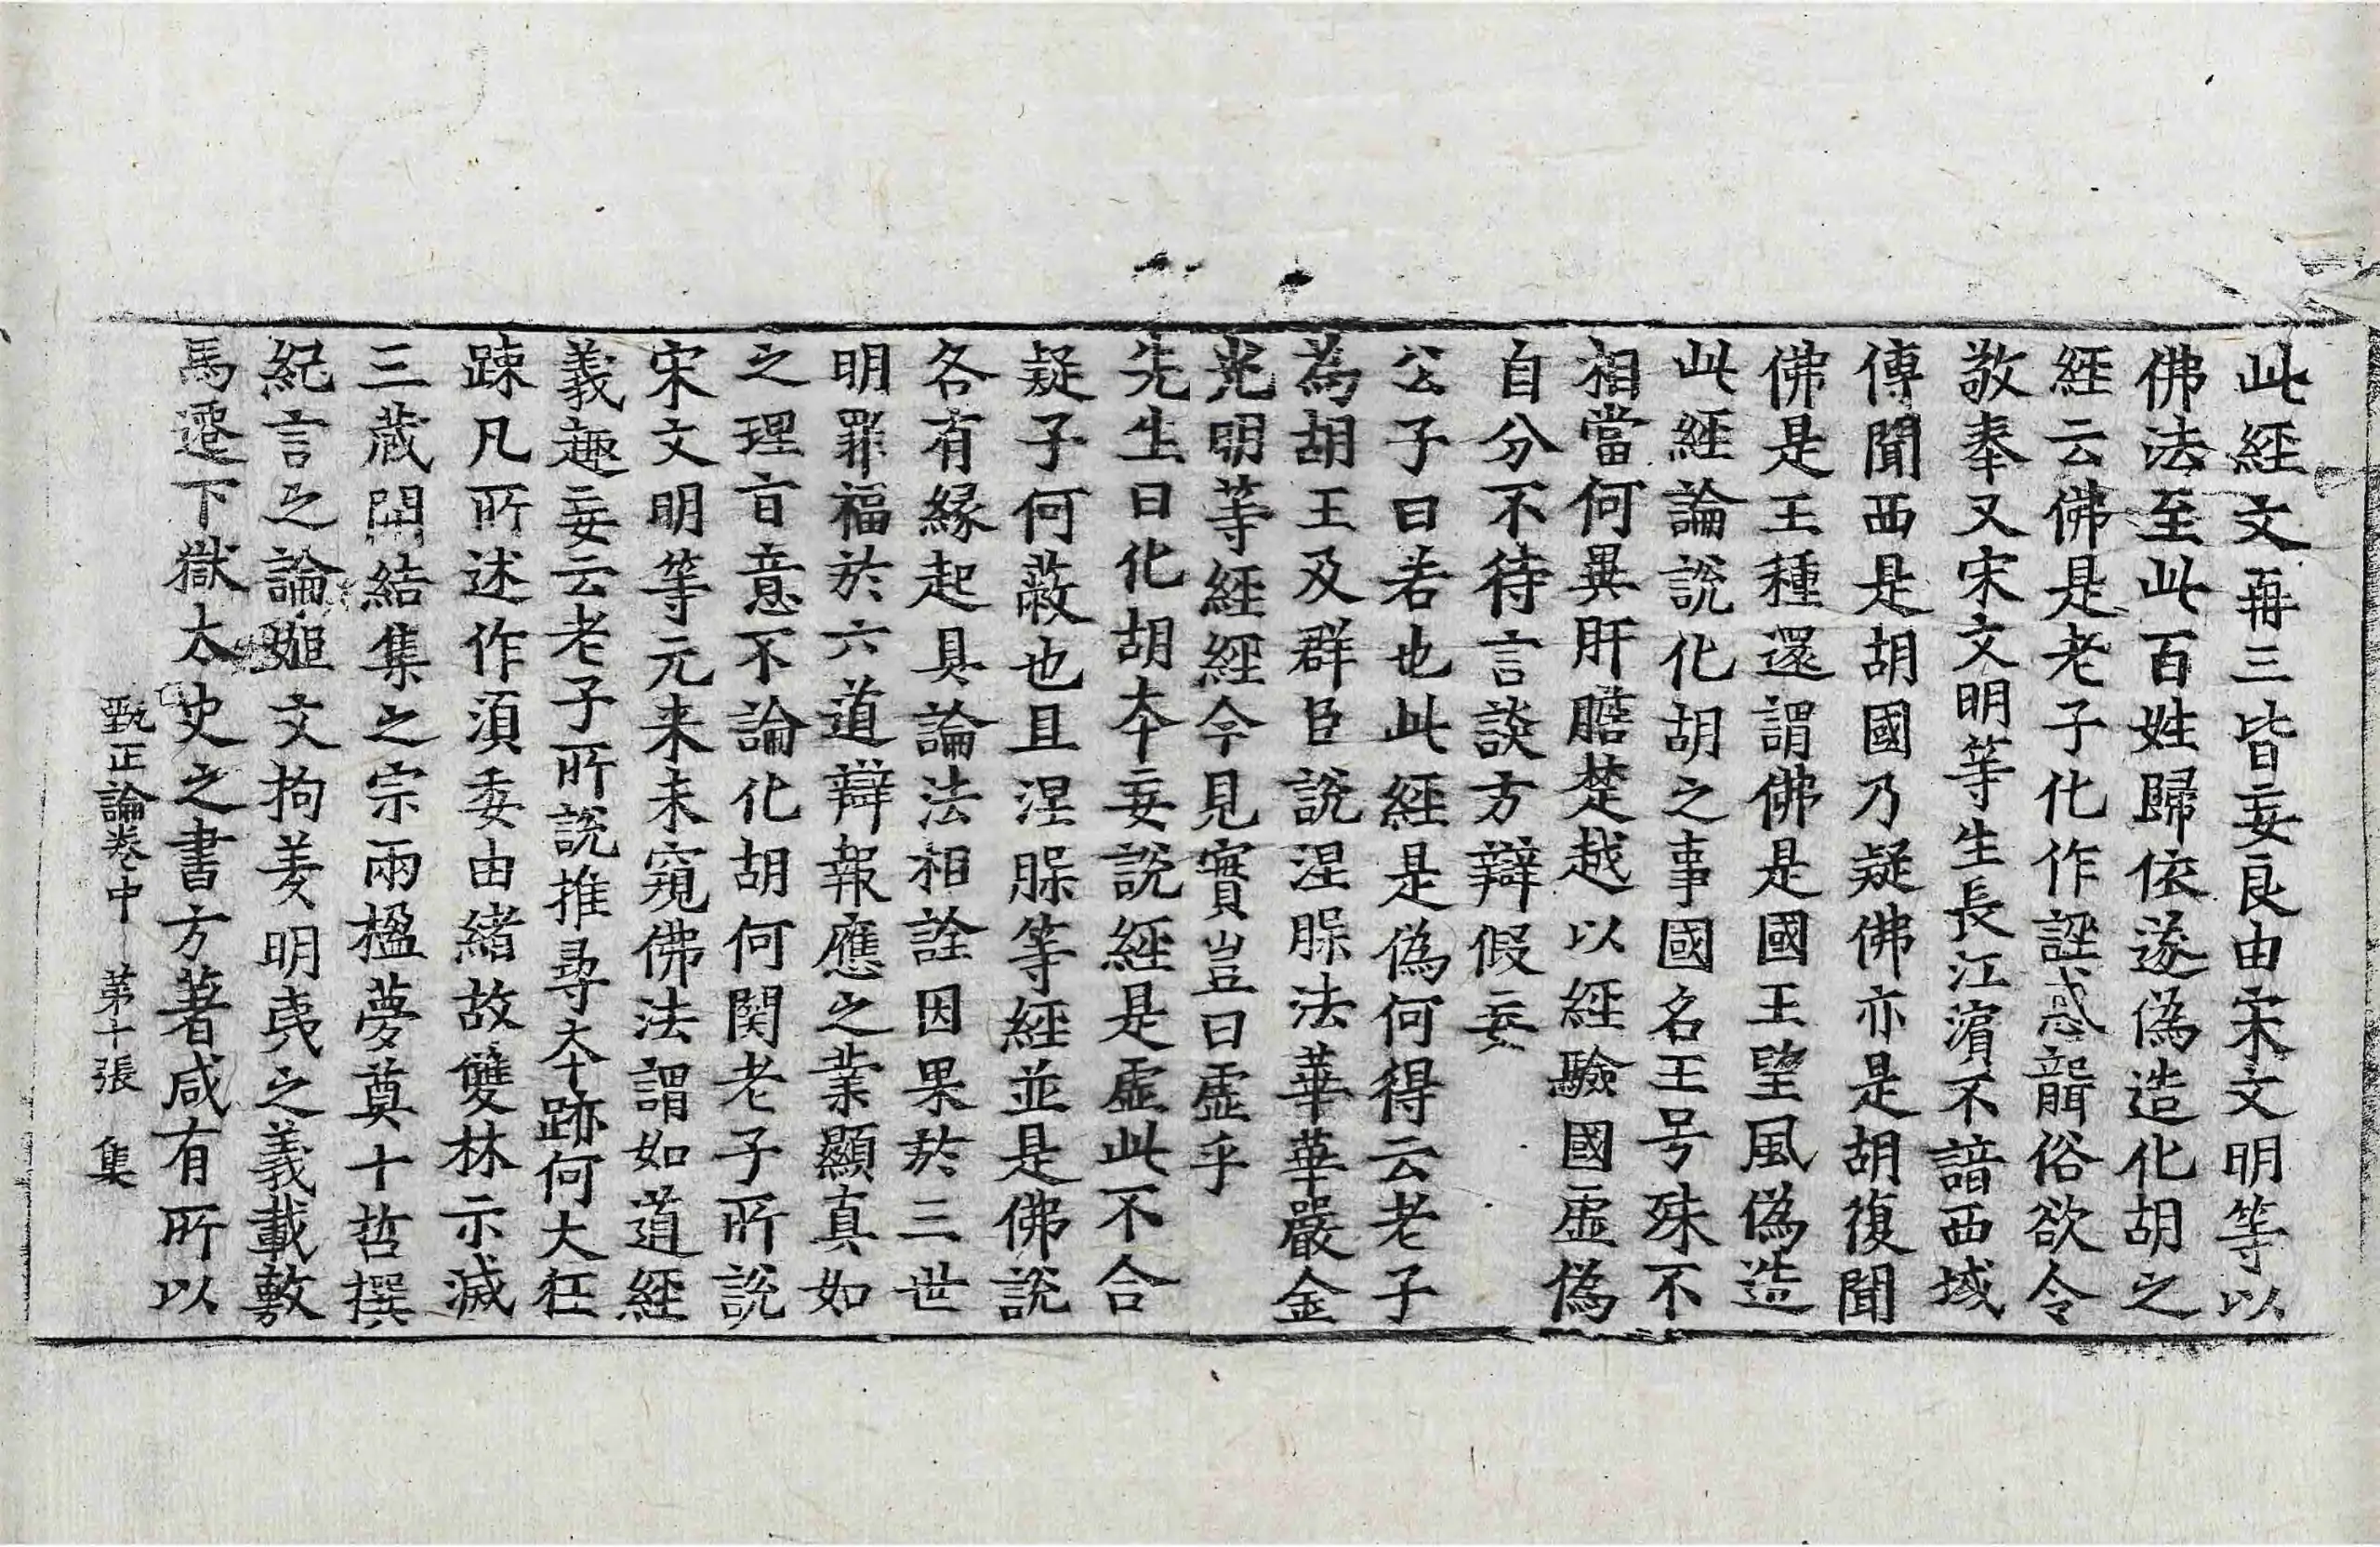 此經文再三皆妄良由宋文明等以
佛法至此百姓歸依遂偽造化胡之
經云佛是老子化作誑惑聾俗欲令
敬奉又宋文明等生長江濱不諳西域
傳聞西是胡國乃疑佛亦是胡復聞
佛是王種還謂佛是國王望風偽造
此經論說化胡之事國名王号殊不
相當何異肝膽楚越以經驗國虛偽
自分不待言談方辯假妄
公子曰若也此經是偽何得云老子
為胡王及群臣說涅槃法華華嚴金
光明等經經今見實豈曰虛乎
先生曰化胡夲妄說經是虛此不合
疑子何蔽也且涅槃等經並是佛說
各有緣起具論法相詮因果於三世
明罪福於六道辯報應之業顯真如
之理旨意不論化胡何関老子所說
宋文明等元来未窺佛法謂如道經
義趣妄云老子所說推尋夲跡何大狂
踈凡所述作須委由緒故雙林示滅
三蔵開結集之宗兩楹夢奠十哲撰
紀言之論姬文拘羑明夷之義載敷
馬遷下獄太史之書方著咸有所以
甄正論卷中 苐十張 集